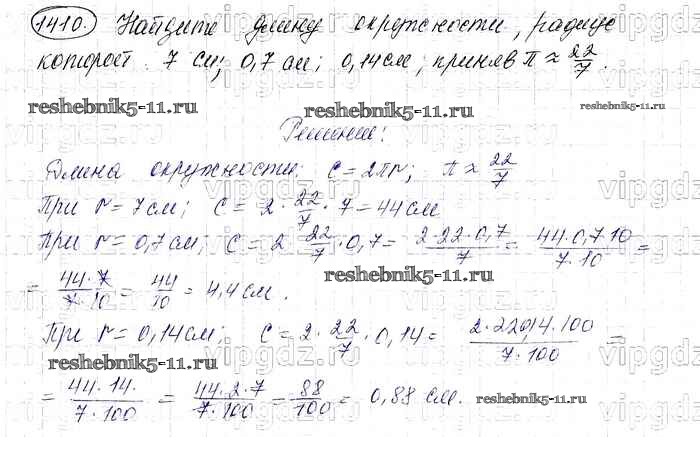 1410. Найдите длину окружности, радиус
которой 7 см; 0,7 см; 0,14 см; приняв π ≈ 22/7.
reshebnik5-11.ru reshebnik5-11.ru reshebnik5-11.ru
Решение:
Длина окружности: C = 2πr; π ≈ 22/7
При r = 7 см; C = 2 · 22/7 · 7 = 44 см
При r = 0,7 см; C = 2 · 22/7 · 0,7 = 2·22·0,7/7 = 44·0,7·10/7·10 =
= 44·7/7·10 = 44/10 = 4,4 см.
reshebnik5-11.ru
При r = 0,14 см; C = 2 · 22/7 · 0,14 = 2·220,14·100/7·100 =
reshebnik5-11.ru
= 44·14·/7·100 = 44·2·7/7·100 = 88/100 = 0,88 см.
reshebnik5-11.ru
vipgdz.ru